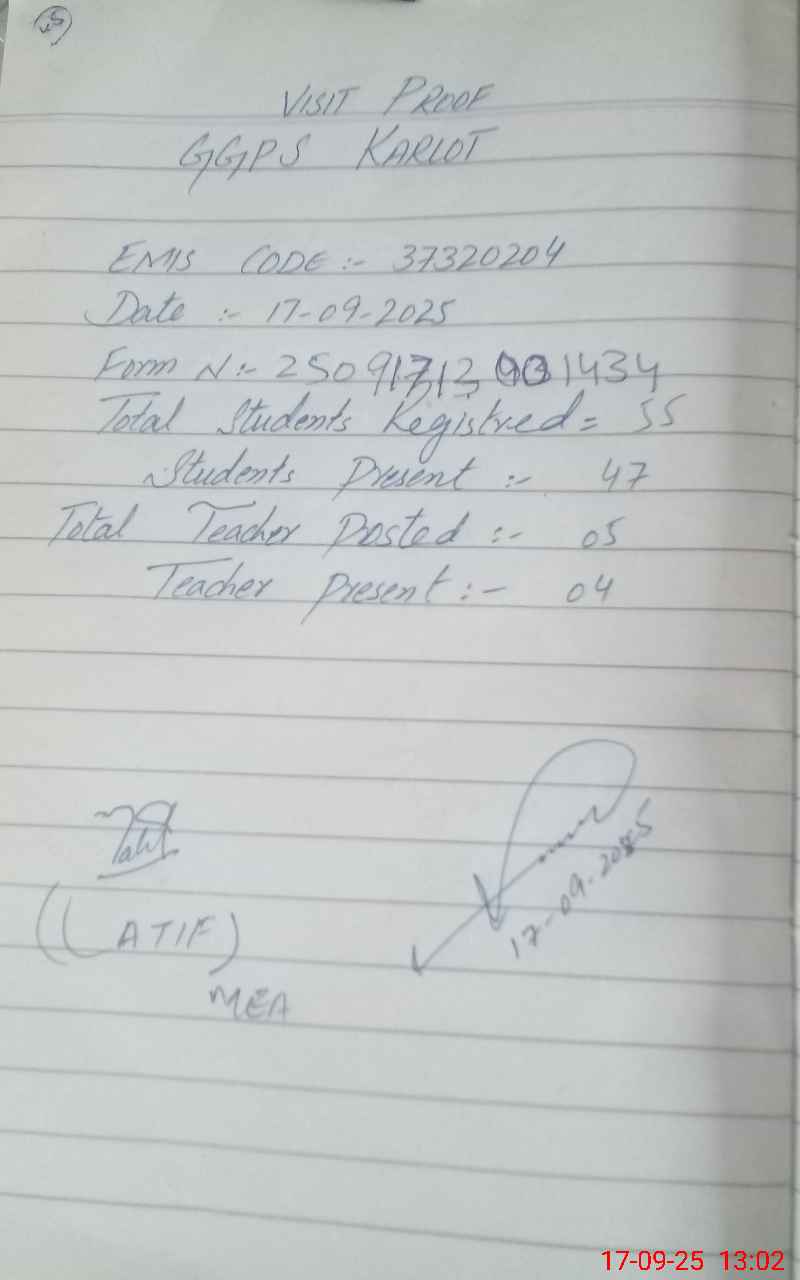 VISIT PROOF
GGPS KARLOT
EMIS CODE :- 37320204
Date :- 17-09-2025
Form N:- 25091713 1434
Total Students Registred = 55
Students Present :- 47
Total Teacher Posted :- 05
Teacher Present :- 04
(LATIF)
MEA
17-09-2025
17-09-25 13:02